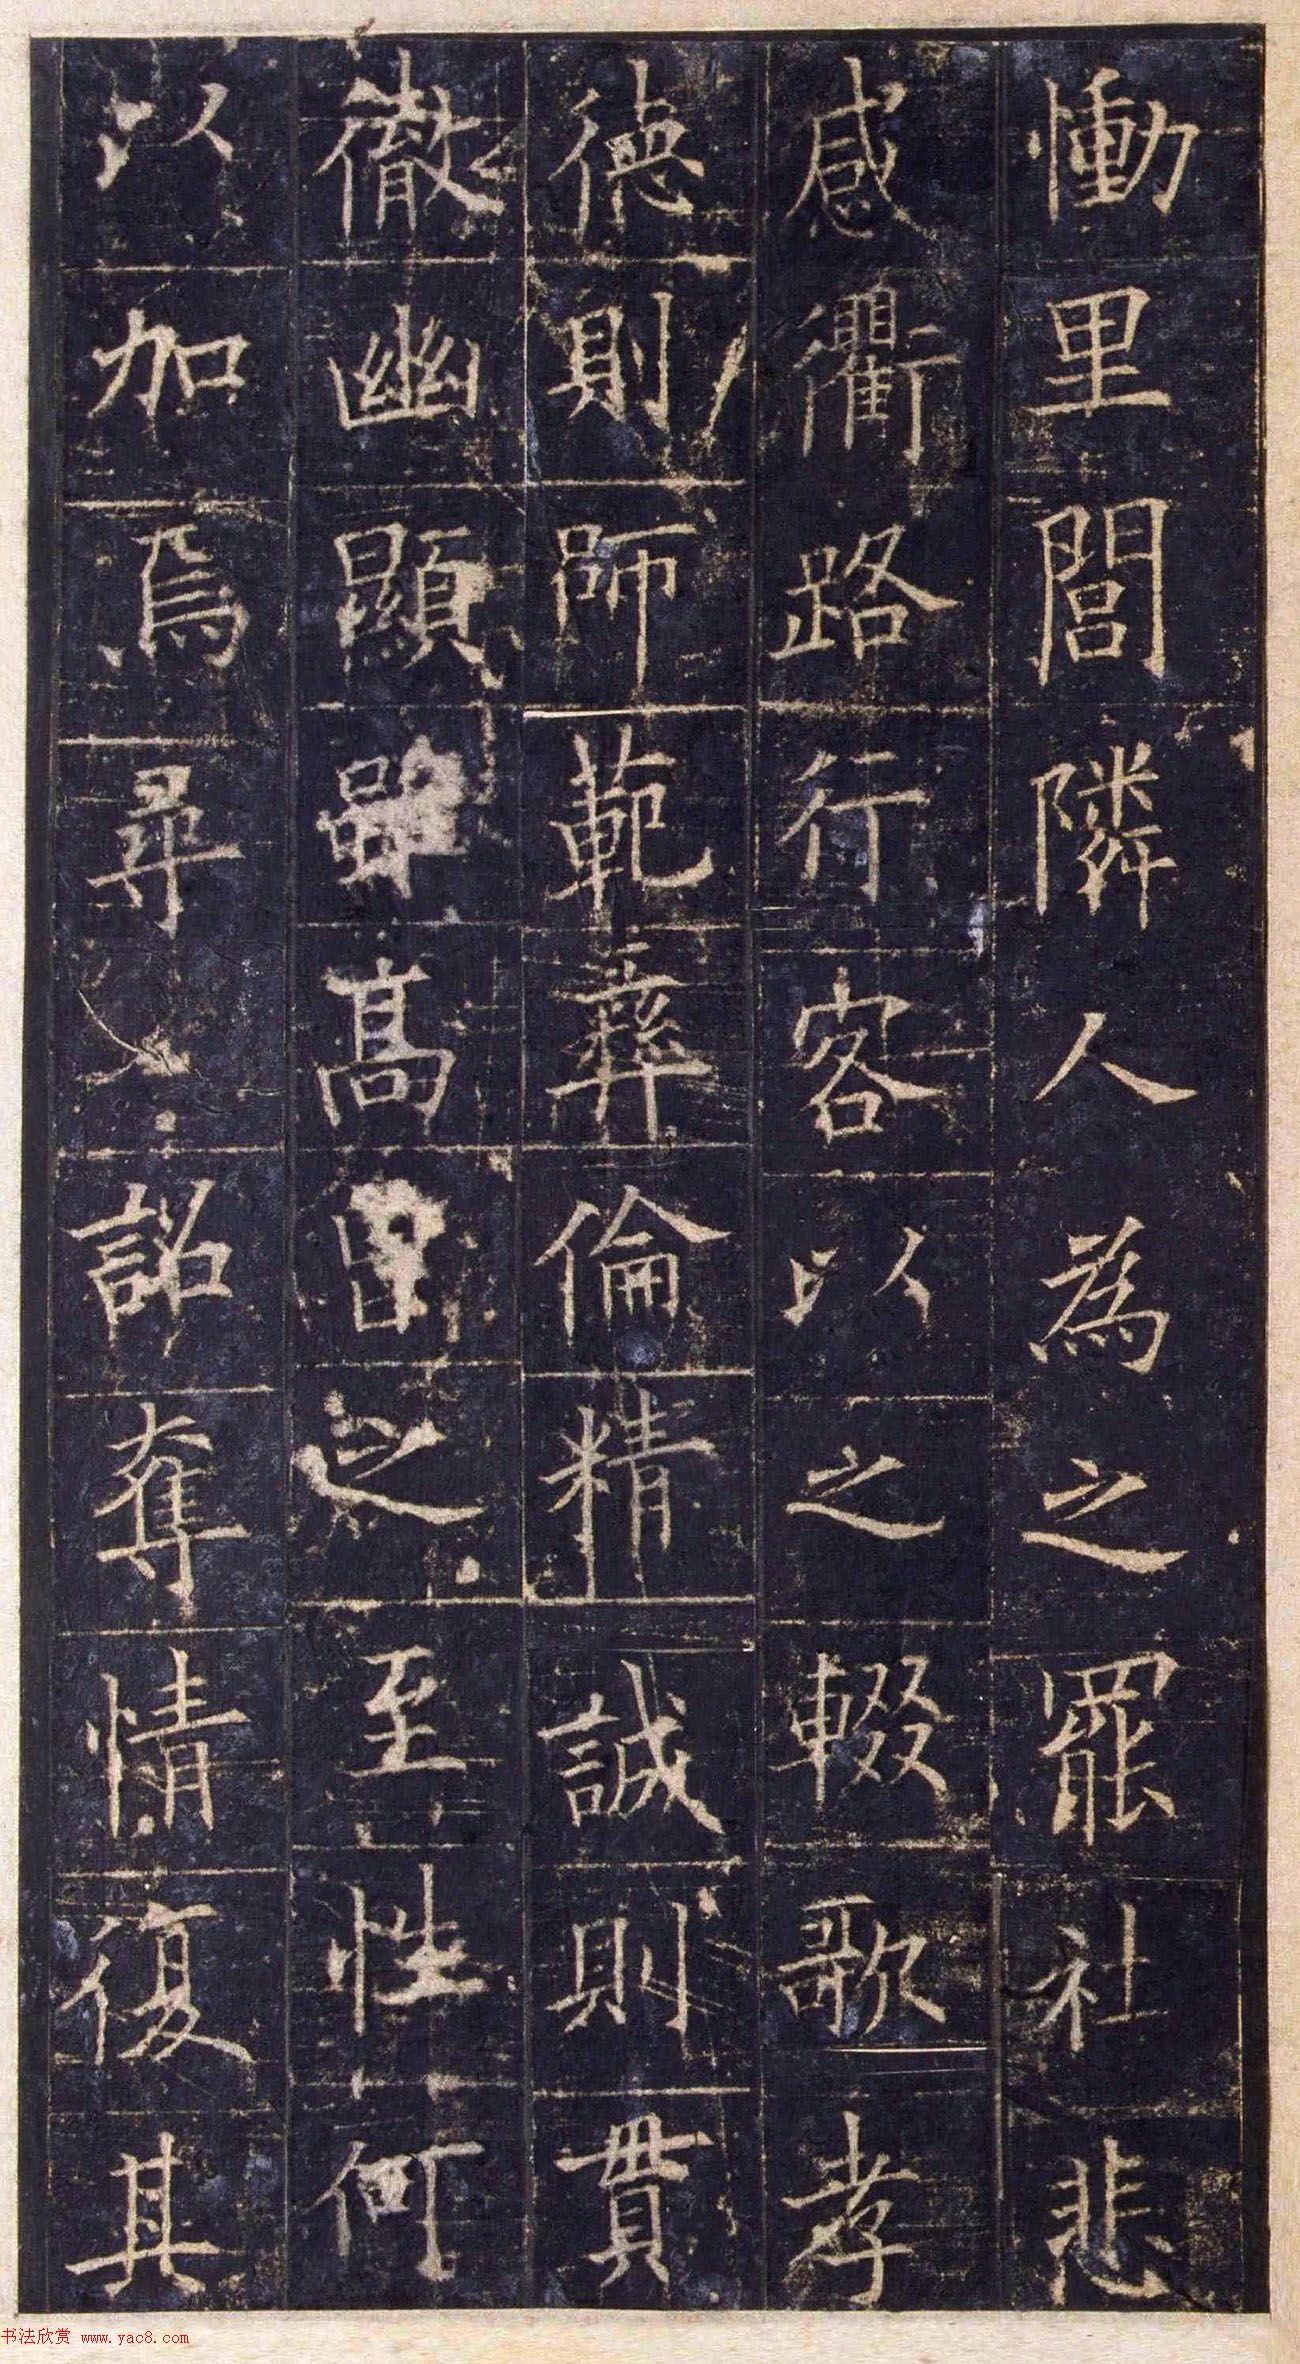 慟里閭隣人為之罷社悲
感衢路行客以之輟歌孝
德則師範彝倫精誠則貫
徹幽顯雖高曾之至性何
以加焉尋詔奪情復其
书法欣赏 www.yac8.com